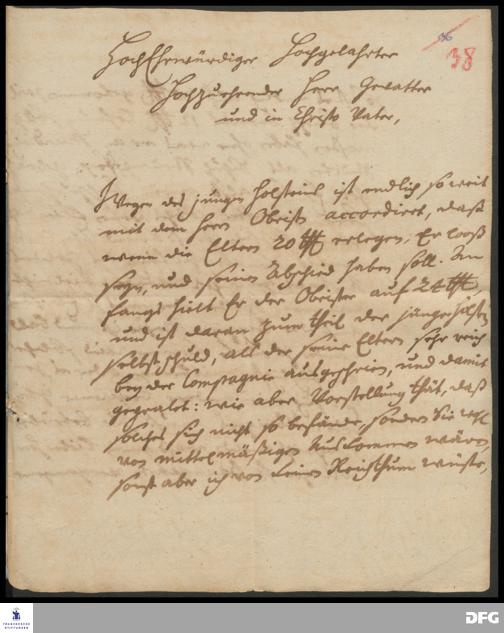 56
38
HochEhrwürdiger Hochgelahrter
Hochzuehrender Herr Gevatter
und in Christo Vater,
Wegen des jungen Holsteins ist endlich so weit
mit dem Herrn Obristen accordiret, daß
wenn die Eltern 20 erlegen, Er loß
seyn, und seinen Abschied haben soll. An
fangs hielt Er der Obrister auf 24
und ist daran zum theil der junge Holstein
selbst schuld, als der seine Eltern sehr reich
bey der Compagnie ausgeschrien, und damit
gepralet: wie aber Vorstellung that, daß
solches sich nicht so befände, sondern Sie
von mittelmäßigen Auskommen wären,
sonst aber ich von keinen Reichthum wüste,
FRANCKESCHE
STIFTUNGEN
DFG